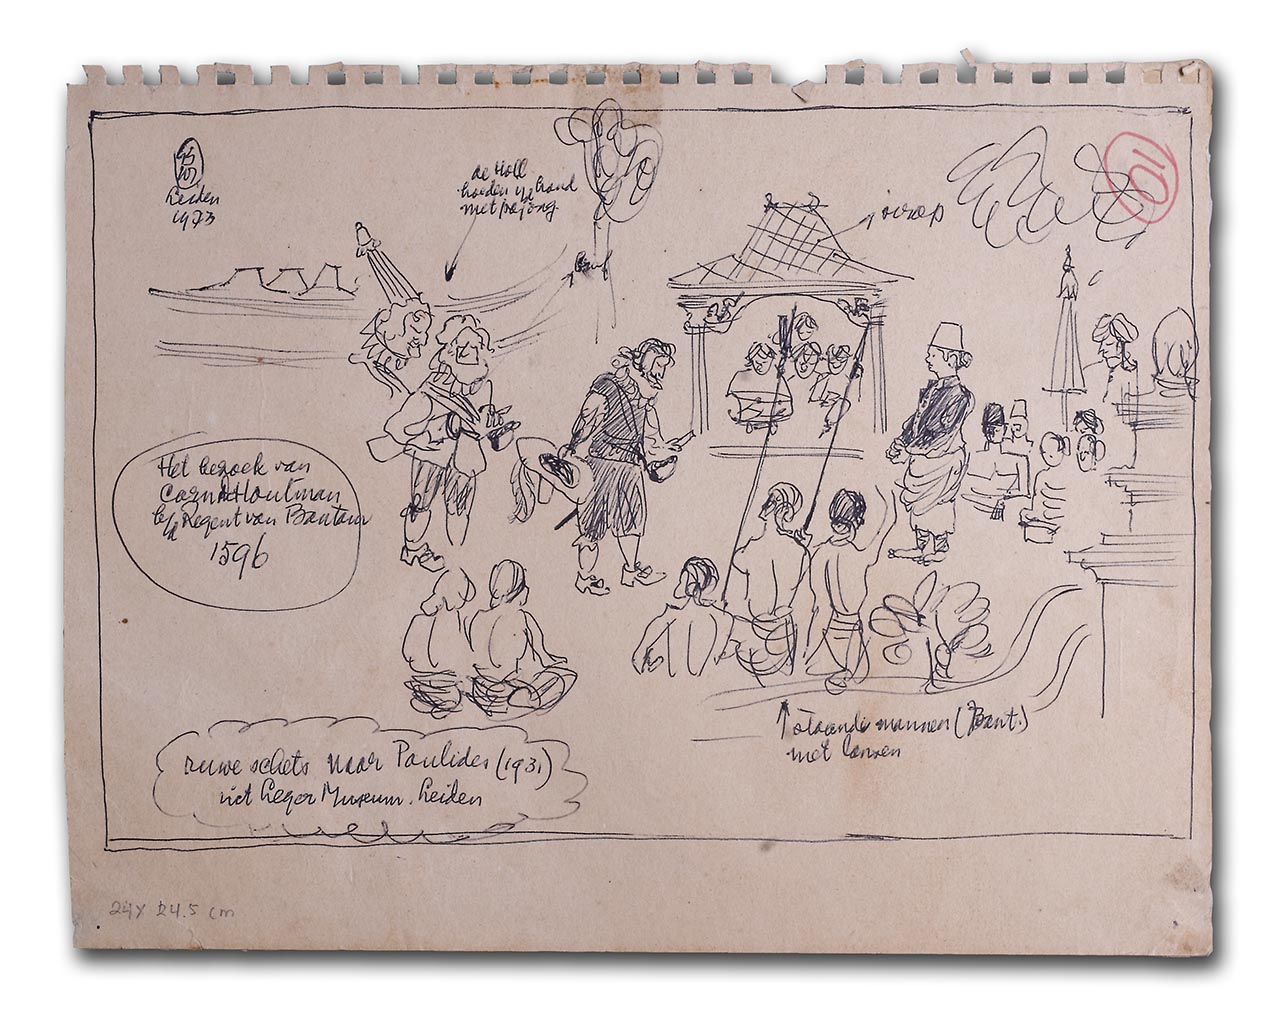 Leiden
1973
de Holl
hoeden i/d hand
met pajong
sirap
110
Het bezoek van
Corn. Houtman
b/d Regent van Bantam
1596
staande mannen (Bant.)
met lansen
ruwe schets naar Paulides (1931)
uit Leger Museum. Leiden
24 x 24.5 cm